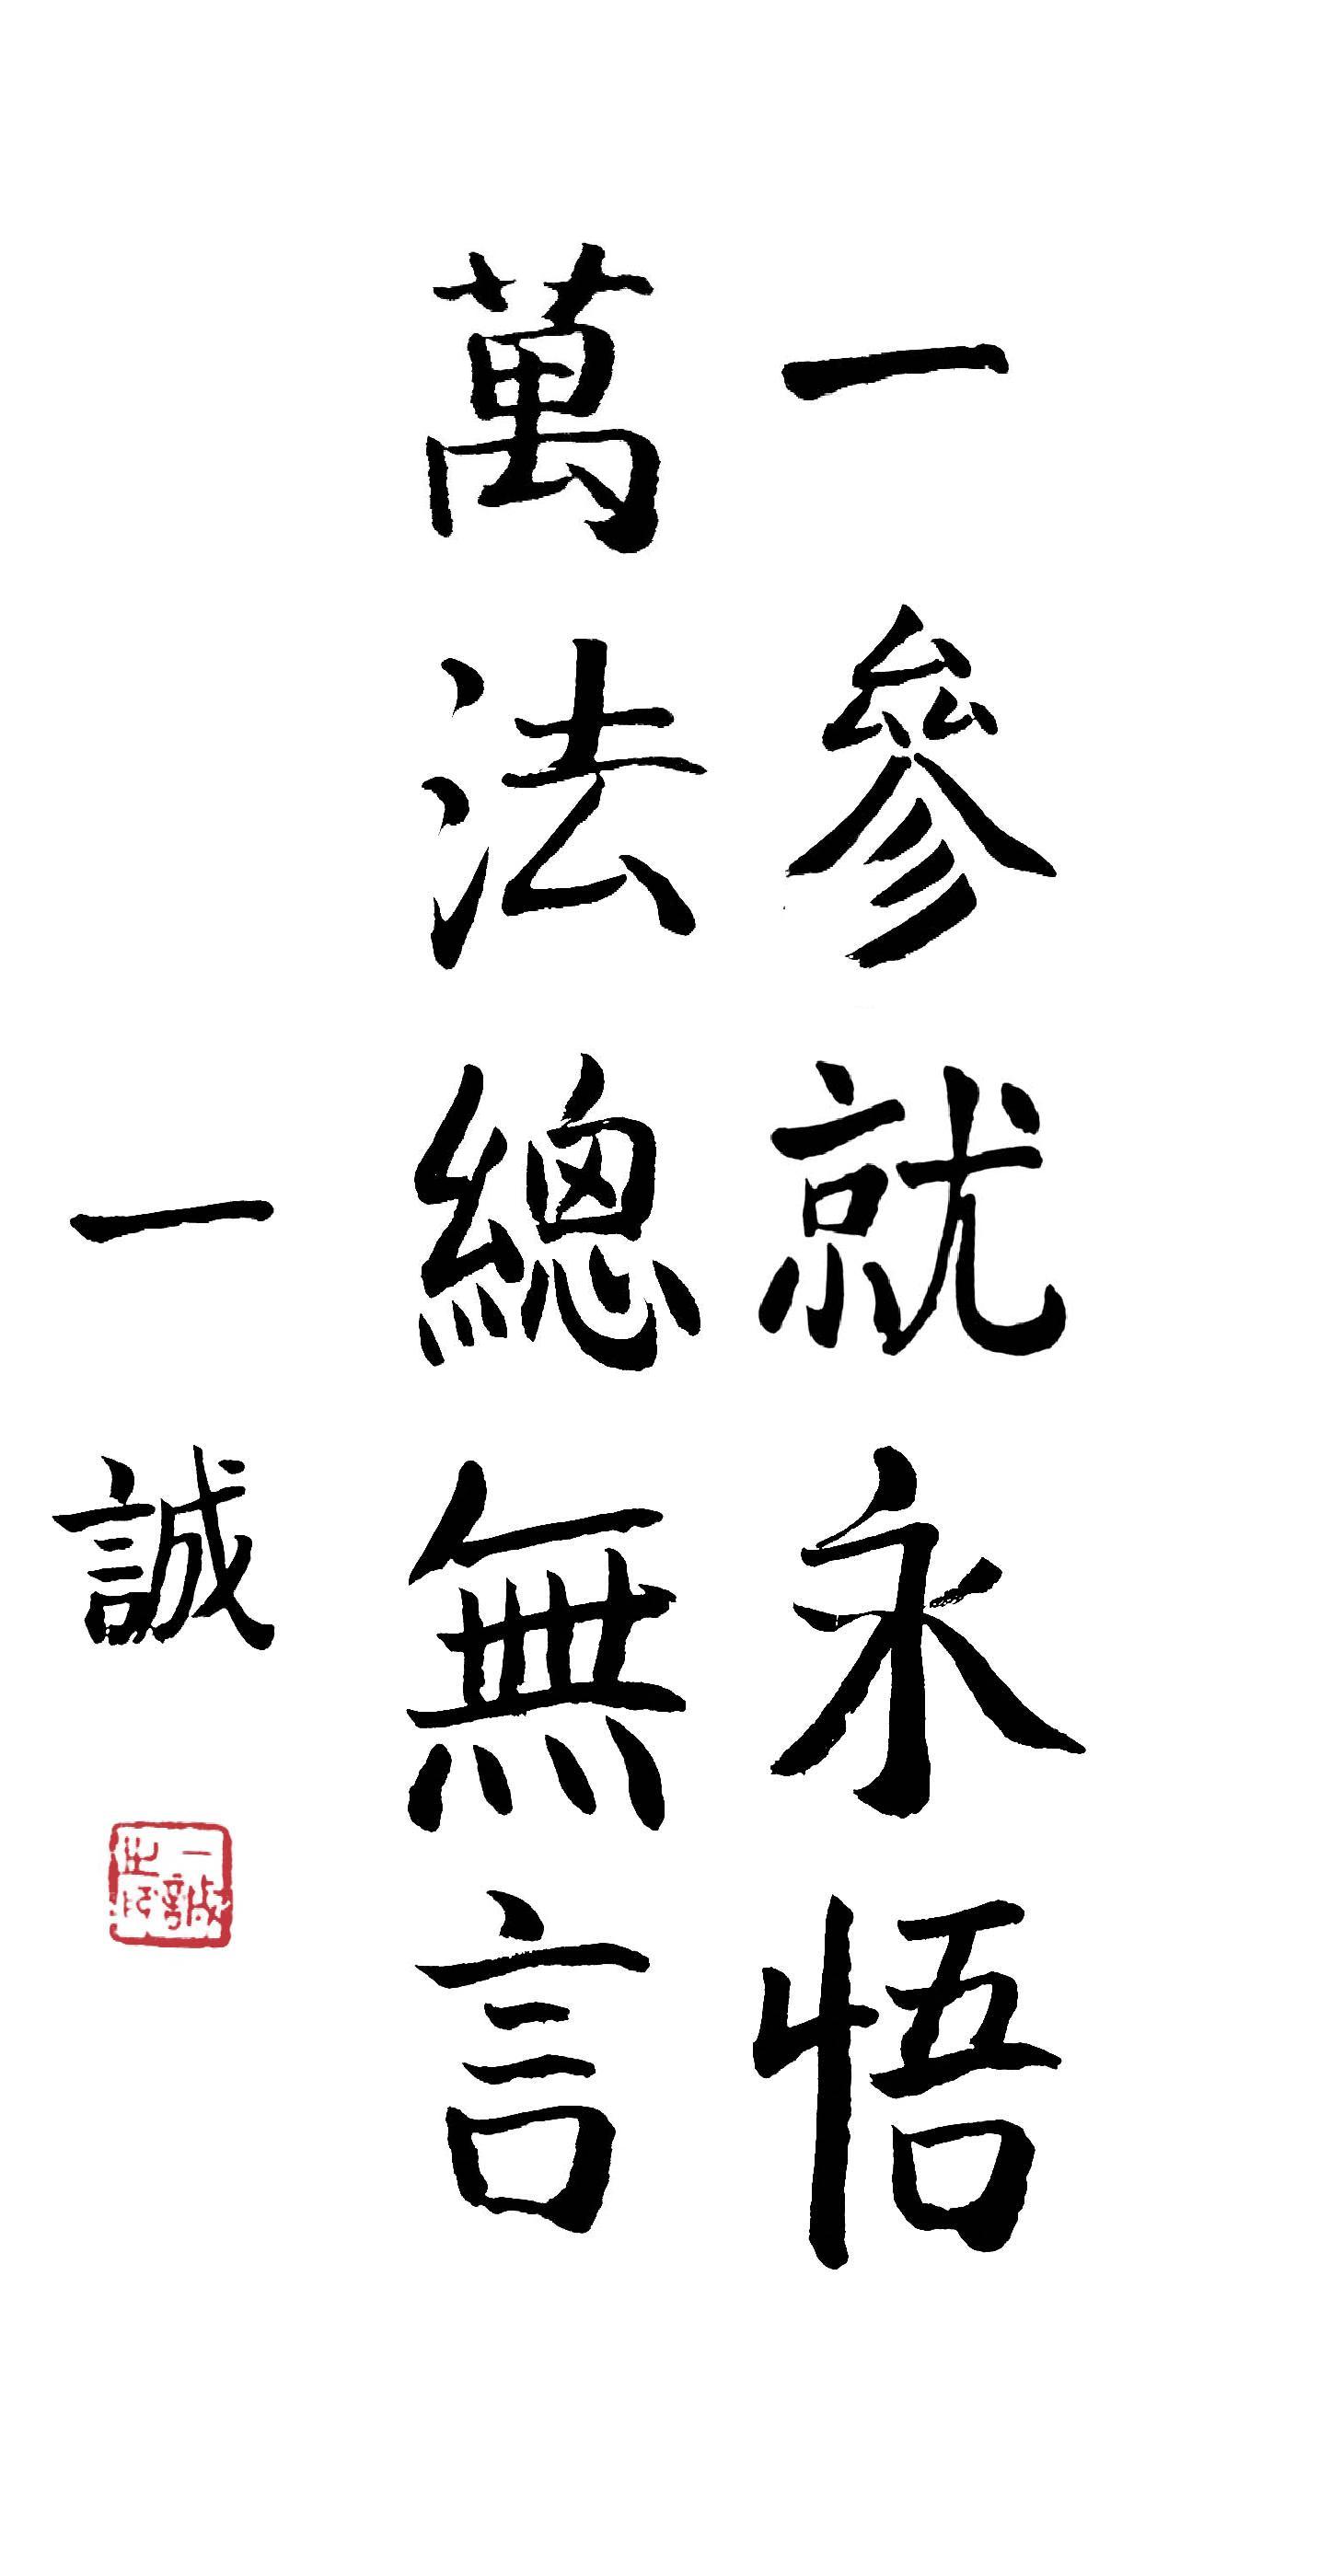 一參就永悟
萬法總無言
一誠
一誠之印